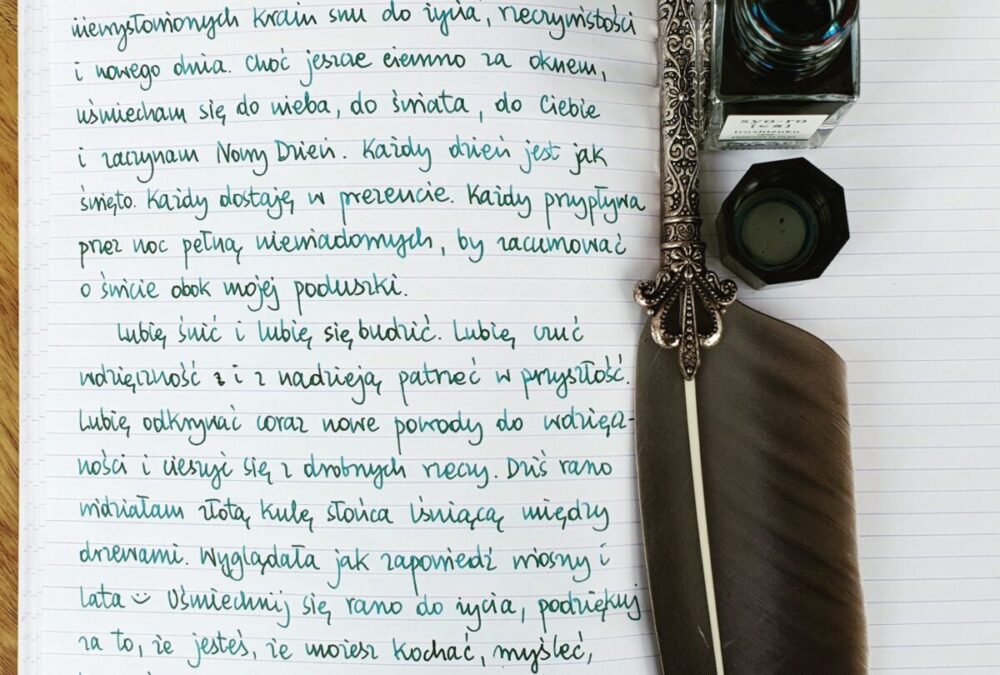 niewysłowionych krain snu do życia, rzeczywistości
i nowego dnia. Choć jeszcze ciemno za oknem,
uśmiecham się do nieba, do świata, do Ciebie
i zaczynam Nowy Dzień. Każdy dzień jest jak
święto. Każdy dostaję w prezencie. Każdy przypływa
przez noc pełną niewiadomych, by zacumować
o świcie obok mojej poduszki.
Lubię śnić i lubię się budzić. Lubię czuć
wdzięczność i z nadzieją patrzeć w przyszłość.
Lubię odkrywać coraz nowe powody do wdzięcz-
ności i cieszyć się z drobnych rzeczy. Dziś rano
widziałam złotą kulę słońca lśniącą między
drzewami. Wyglądała jak zapowiedź wiosny i
lata Uśmiechnij się rano do życia, podziękuj
za to, że jesteś, że możesz kochać, myśleć,
syo-ro
iroshizuku